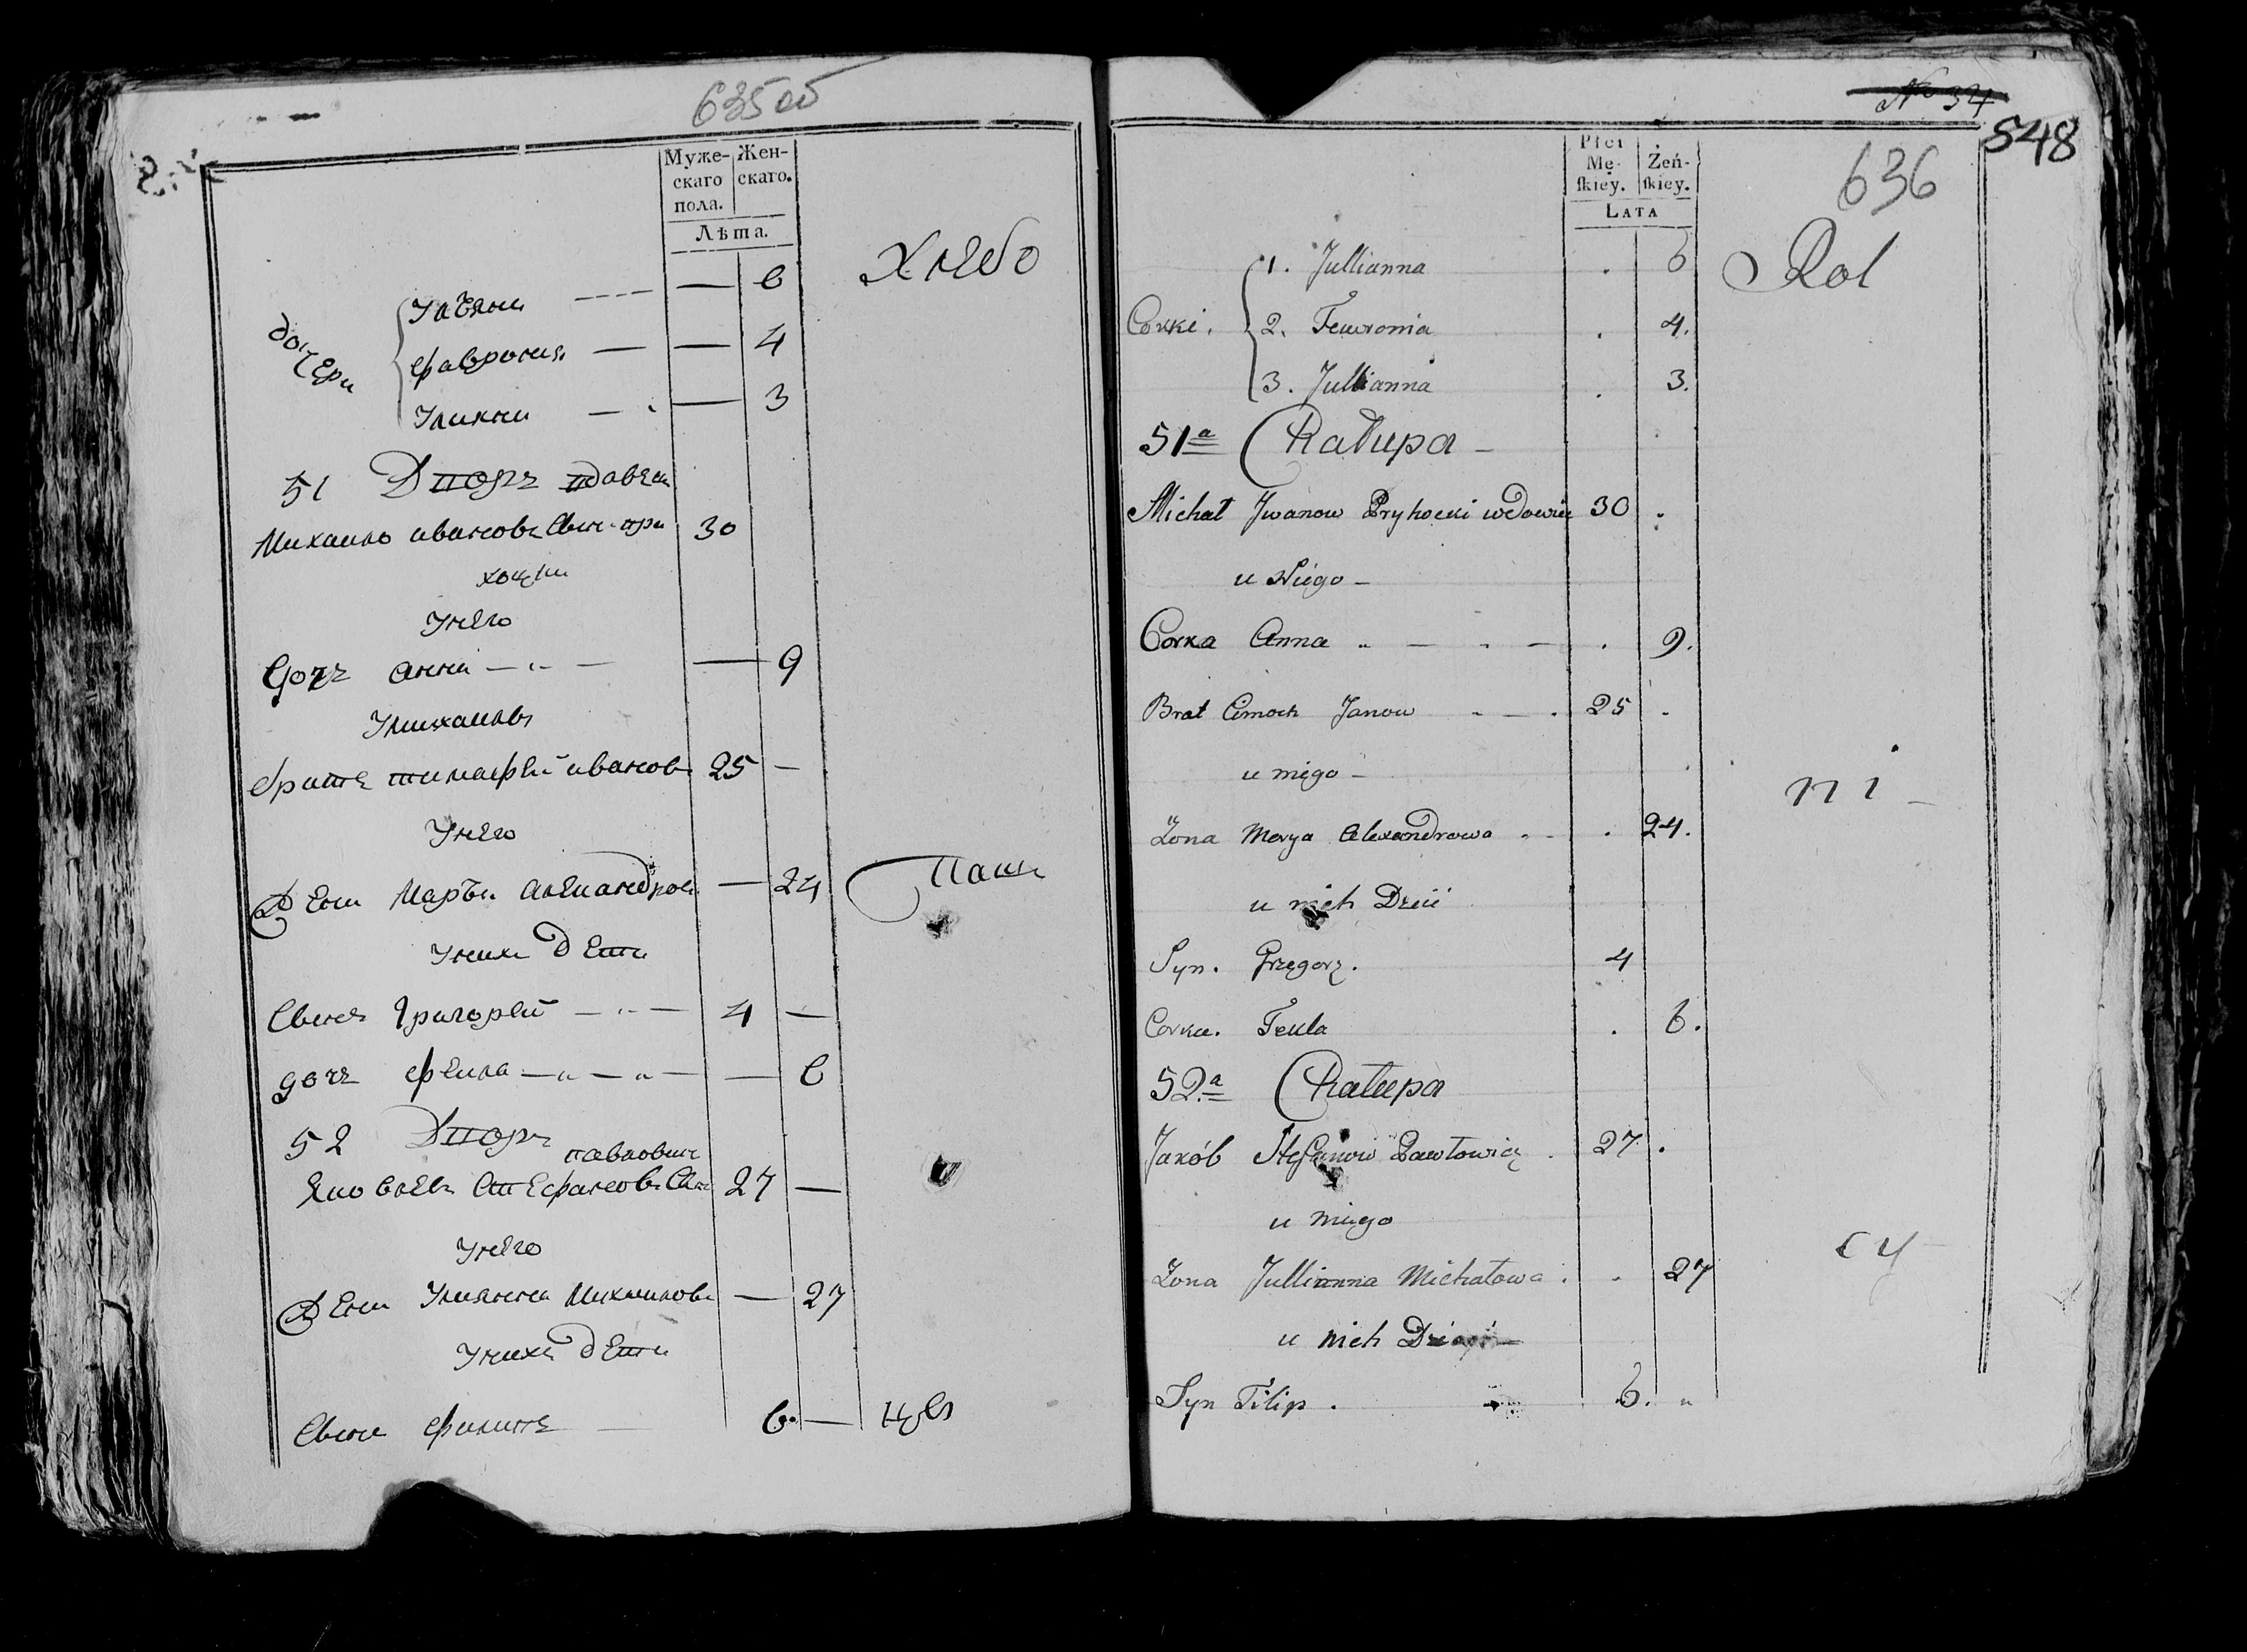 635 об
Муже-скаго пола. Жен-скаго.
Лѣта.
Хлебо
дочери
Ульяна — 6
Февронiя — — 4
Улияна — — 3
51 Дворъ
Михаило ивановъ Сынъ при 30
хоцки
Унего
дочъ анна — — 9
Умихаила
братъ тимофей ивановъ 25 —
Унего
Жена Марья александрова — 24 Паш
Унихъ дети
Сынъ Григорей — 4 —
дочъ фекла — — 6
52 Дворъ
павловичъ
Яковлевъ Стефановъ Сынъ 27 —
Унего
Жена Улиянна Михаилова — 27
Унихъ дети
Сынъ филипъ 6. — цы
№ 34
548
636
Płci Mę-skiey. Żeń-skiey.
Lata
Rol
Corki.
1. Jullianna . 6
2. Fewronia . 4.
3. Jullianna . 3.
51a Chałupa —
Michał Jwanow Prykocki wdowiec 30 .
u Niego —
Corka Anna . 9.
Brat Cimoch Janow 25 .
u niego —
ni —
Zona Marya Alexandrowa . 24.
u nich Dzieci
Syn. Grzegorz. 4
Corka. Tekla . 6.
52a Chałupa
Jakób Stefanow Pawłowicz . 27 .
u niego
cy —
Zona Jullianna Michałowa . . 27
u nich Dzieci —
Syn Filip . 6. "